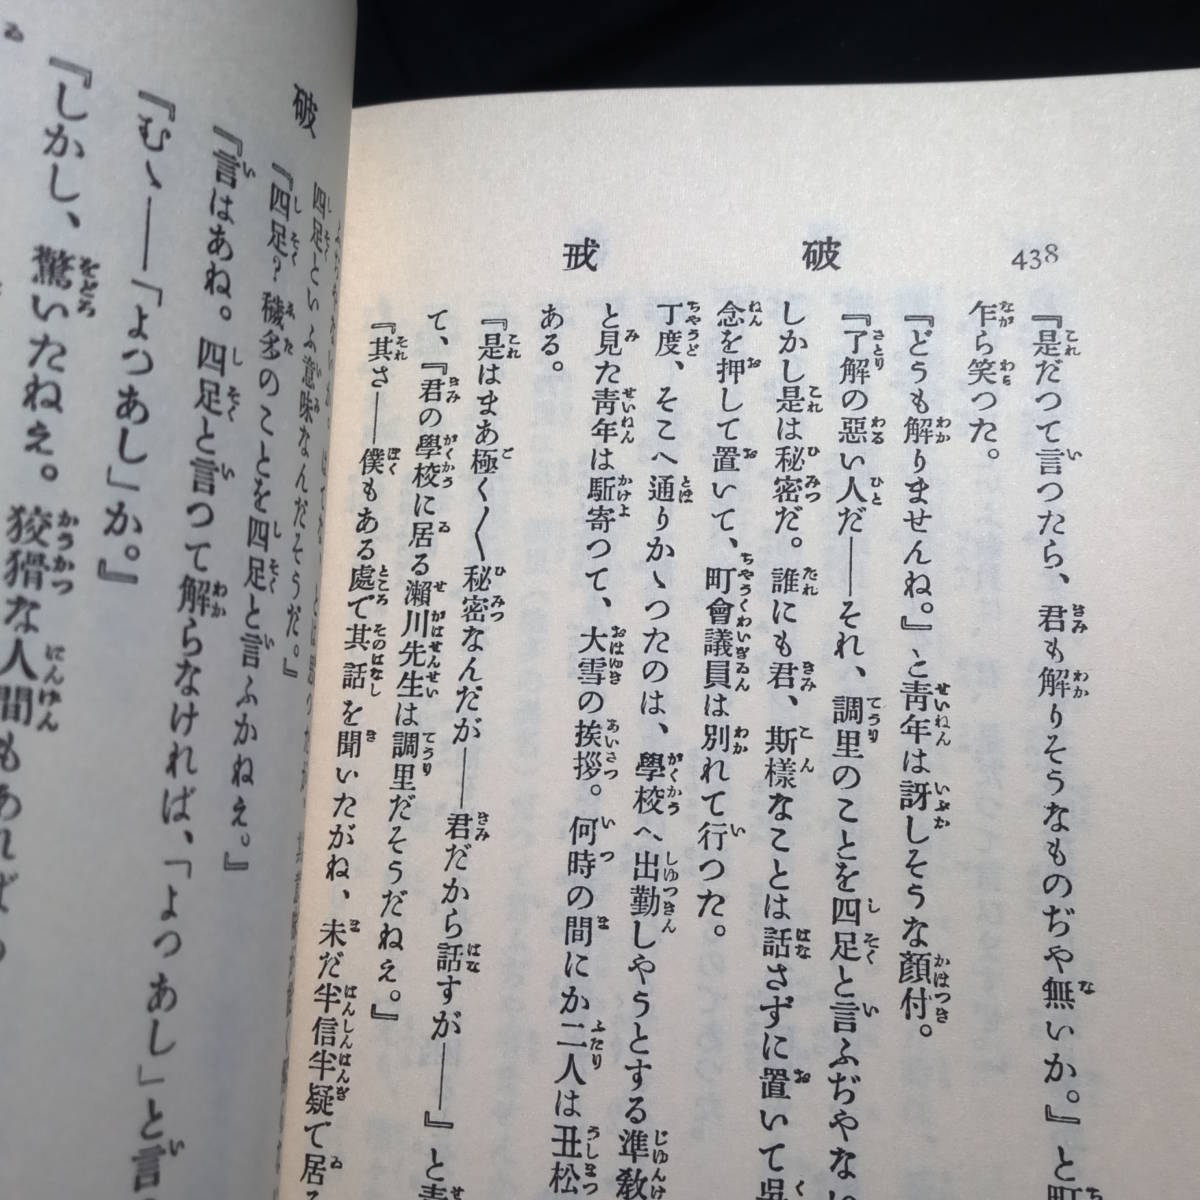 438
破
戒
『是だつて言つたら、君も解りそうなものぢや無いか。』と町
乍ら笑つた。
『どうも解りませんね。』と靑年は訝しそうな顔付。
『了解の惡い人だ――それ、調里のことを四足と言ふぢやない
しかし是は秘密だ。誰にも君、斯樣なことは話さずに置いて吳
念を押して置いて、町會議員は別れて行つた。
丁度、そこへ通りかゝつたのは、學校へ出勤しやうとする準敎
と見た靑年は駈寄つて、大雪の挨拶。何時の間にか二人は丑松
ある。
『是はまあ極く〱秘密なんだが――君だから話すが――』と靑
て、『君の學校に居る瀨川先生は調里だそうだねえ。』
『其さ――僕もある處で其話を聞いたがね、未だ半信半疑で居る
破
四足といふ意味なんだそうだ。』
『四足？穢多のことを四足と言ふかねぇ。』
『言はあね。四足と言つて解らなければ、「よつあし」と言
『むゝ――「よつあし」か。』
『しかし、驚いたねぇ。狡猾な人間もあれば